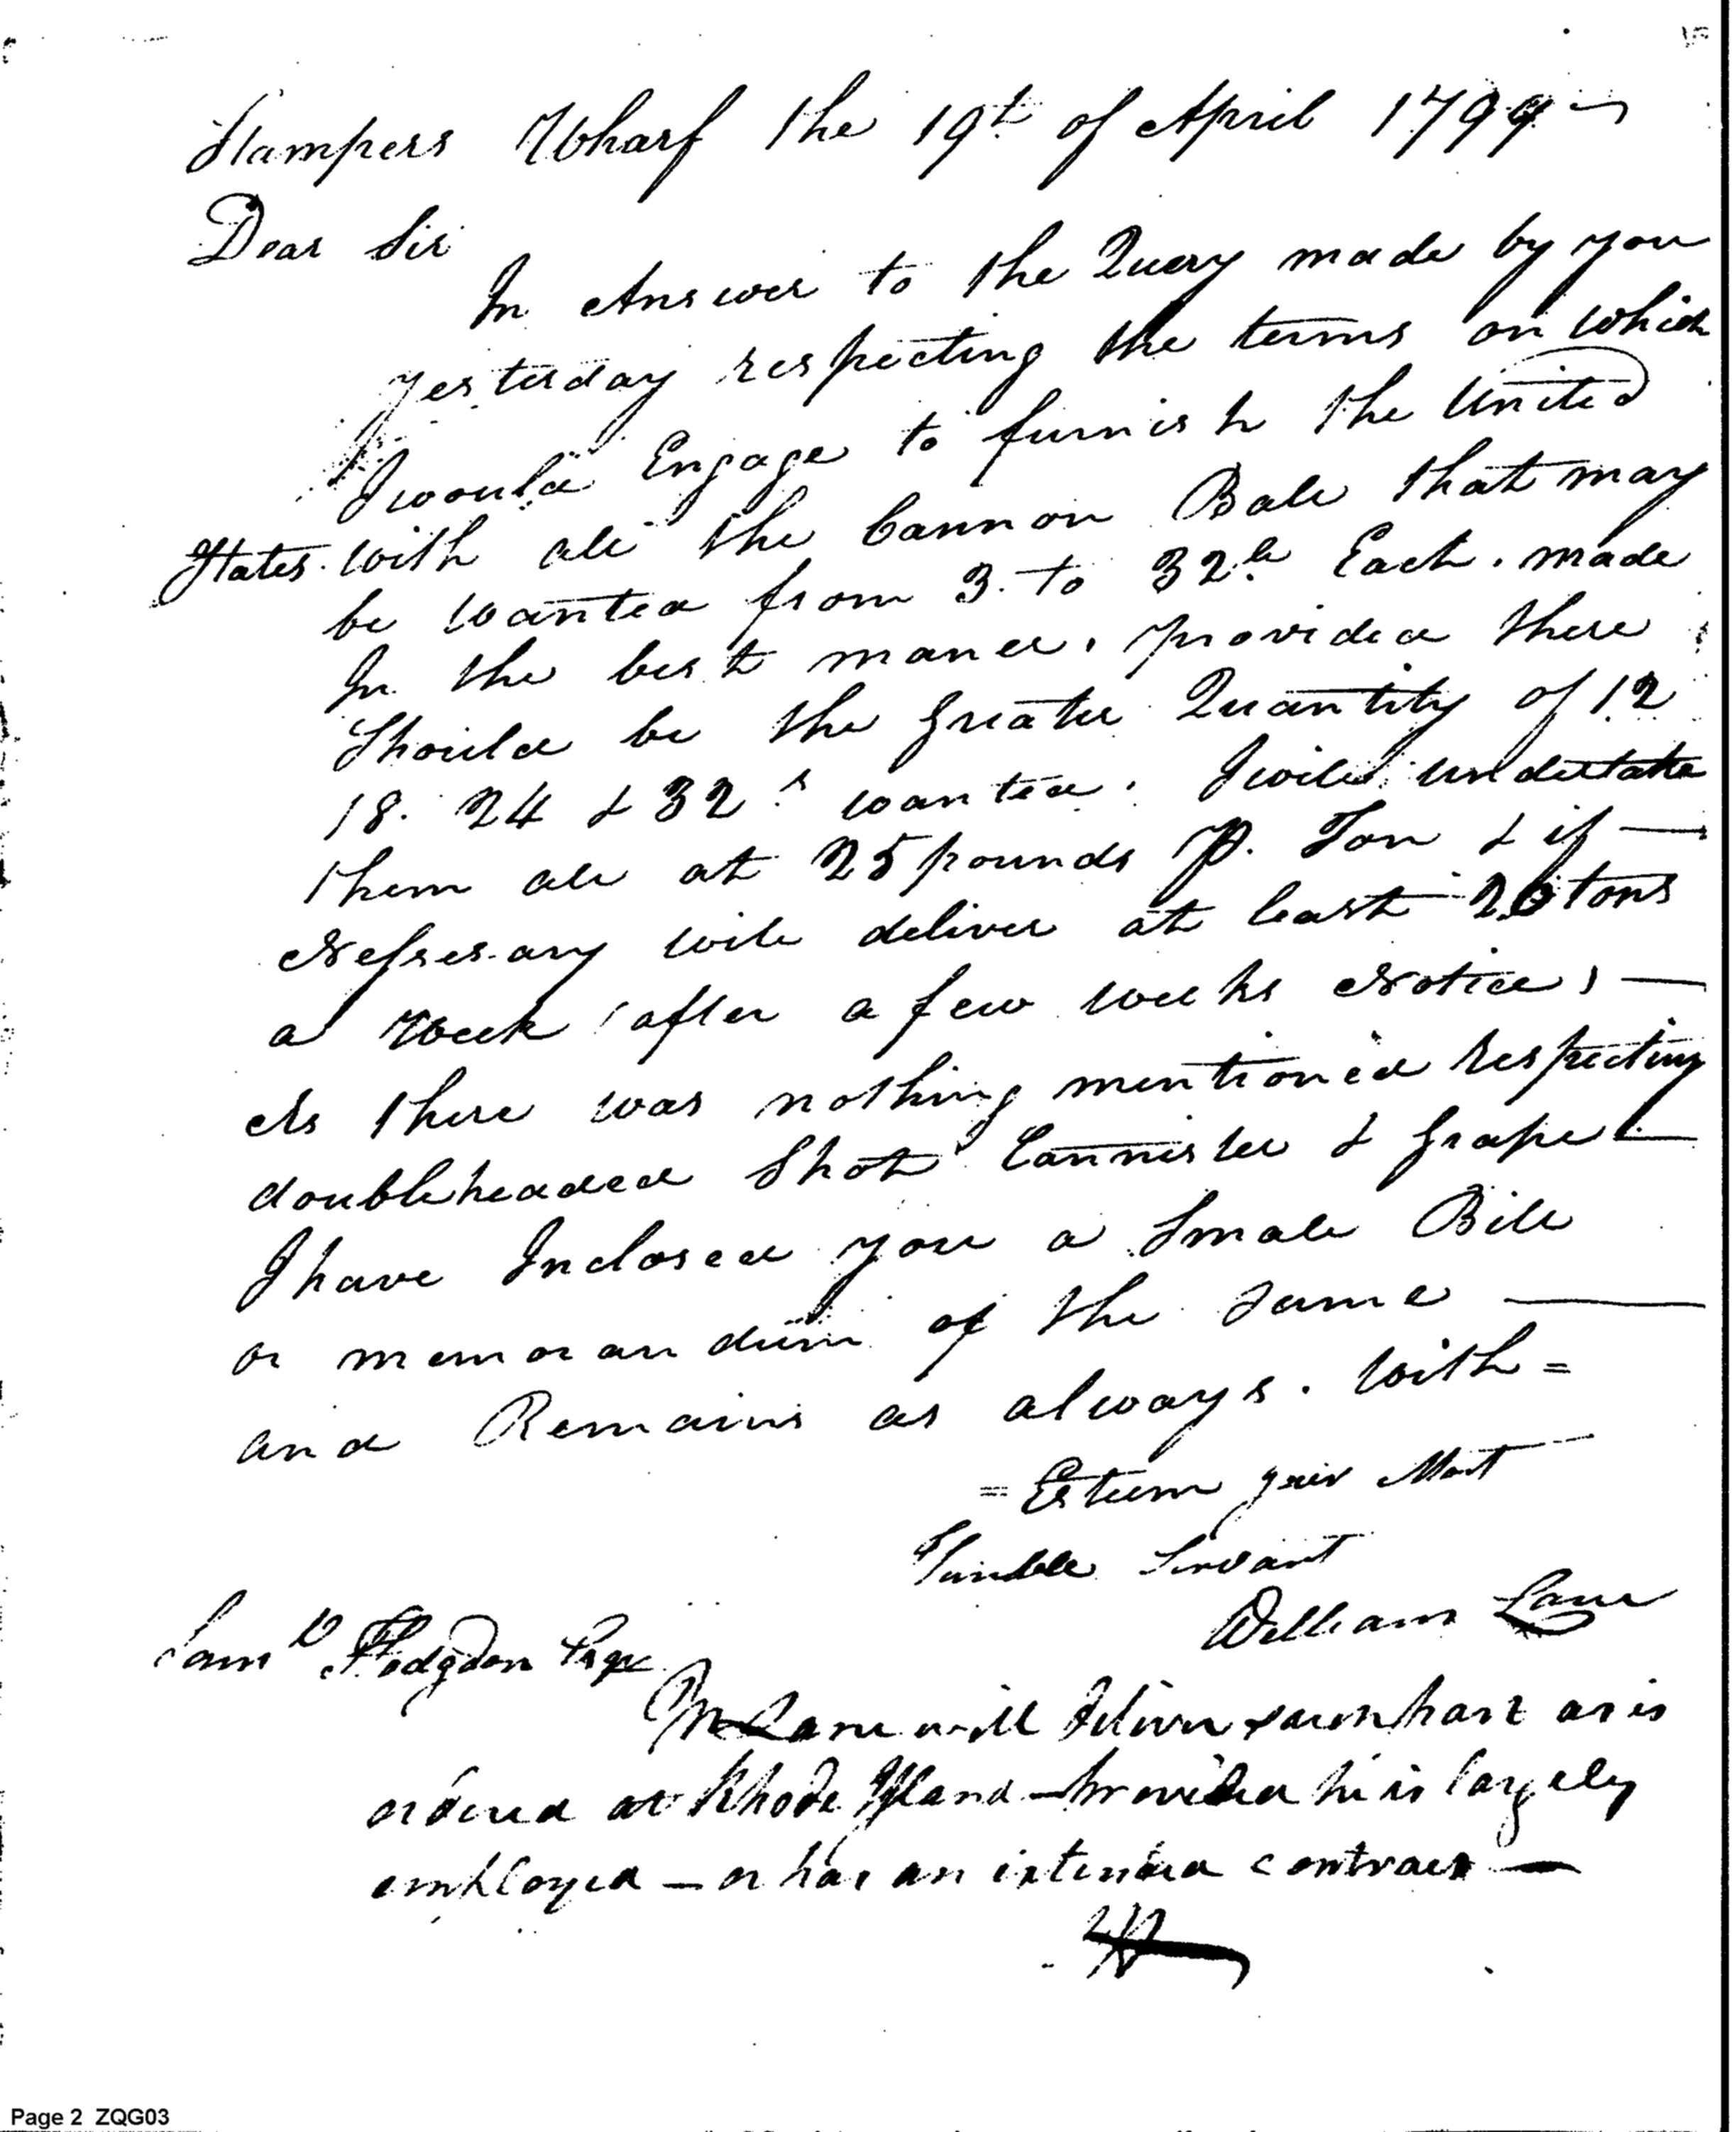 Stampers Wharf the 19t of April 1799
Dear Sir
In Answer to the Query made by you
yesterday respecting the terms on which
I would Engage to furnish the United
States with all the Cannon Ball that may
be wanted from 3. to 32lb Each. made
In the best maner, provided there
Should be the Greater Quantity of 12
18. 24 & 32s wanted. I will undertake
them all at 25 pounds P. Ton & if —
Nessesary will deliver at least 20 tons
a Week after a few weeks Notice, —
As there was nothing mentioned respecting
doubleheaded Shot Cannister & Grape —
I have Inclosed you a Small Bill
or memorandum of the Same —
and Remains as always. With =
= Esteem your Most
Humble Servant
William Lane
Saml Hodgdon Esqr
Mr Lane will deliver as is
ordered at Rhode Island — provided he is largely
employed — or has an extended contract —